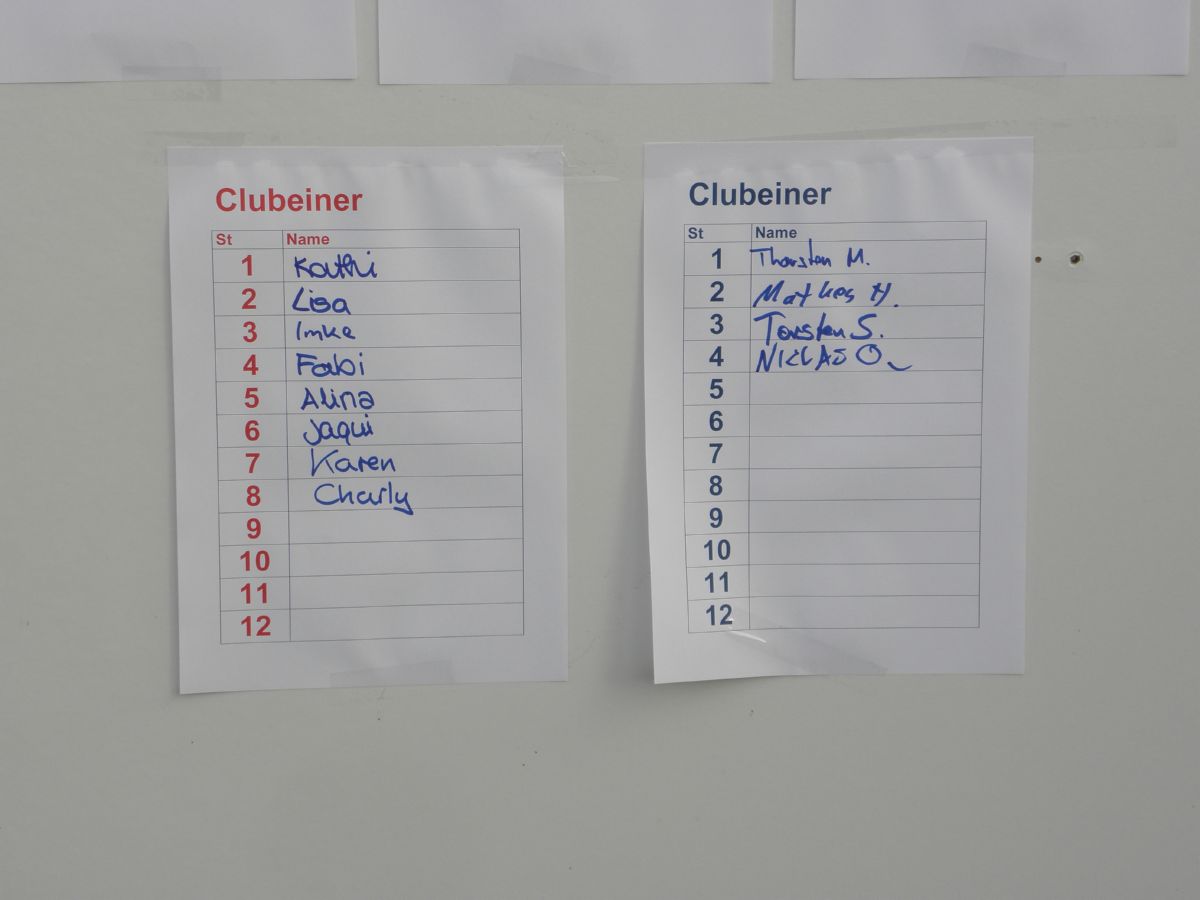 Clubeiner
St Name
1 Kathi
2 Lisa
3 Imke
4 Fabi
5 Alina
6 Jaqui
7 Karen
8 Charly
9
10
11
12
Clubeiner
St Name
1 Thorsten M.
2 H.
3 Torsten S.
4 NIKLAS O.
5
6
7
8
9
10
11
12